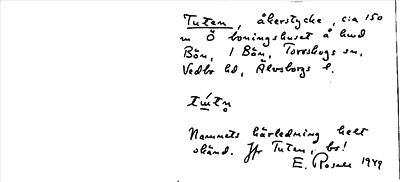 Tuten, åkerstycke, c:a 150
m Ö boningshuset å hmd
Bön, 1 Bön, Torrskogs sn,
Vedbo hd, Älvsborgs l.
Namnets härledning helt
okänd. Jfr Tuten, bs!
E. Rosell 1949